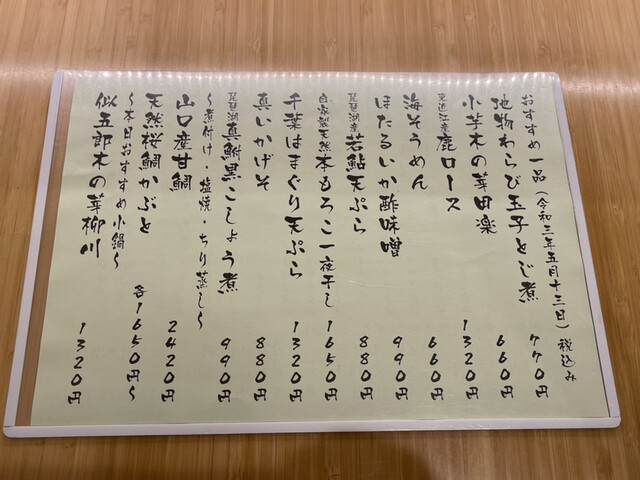 おすすめ一品(令和三年五月十三日)税込み
地物わらび玉子とじ煮 770円
小芋木の芽田楽 660円
東近江産鹿ロース 1320円
海そうめん 660円
ほたるいか酢味噌 990円
琵琶湖産若鮎天ぷら 880円
自家製天然本もろこ一夜干し 1650円
千葉はまぐり天ぷら 1320円
真いかげそ 880円
琵琶湖真鮒黒こしょう煮 990円
〜煮付け・塩焼・ちり蒸し〜
山口産甘鯛 2420円
天然桜鯛かぶと 各1650円〜
〜本日おすすめ小鍋〜
似五郎木の芽柳川 1320円